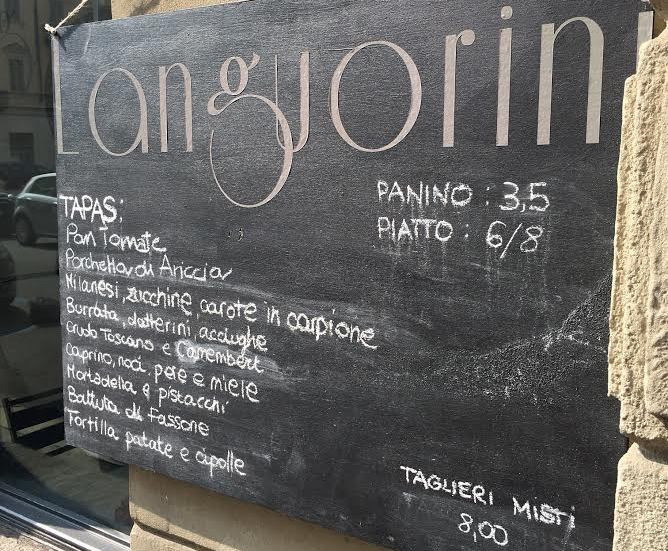 Languorini
TAPAS:
Pan Tomate
Porchetta di Ariccia
Milanesi, zucchine, carote in carpione
Burrata, datterini, acciughe
Crudo Toscano e Camembert
Caprino, noci, pere e miele
Mortadella e pistacchi
Battuta di Fassone
Tortilla patate e cipolle
PANINO : 3,5
PIATTO : 6/8
TAGLIERI MISTI
8,00